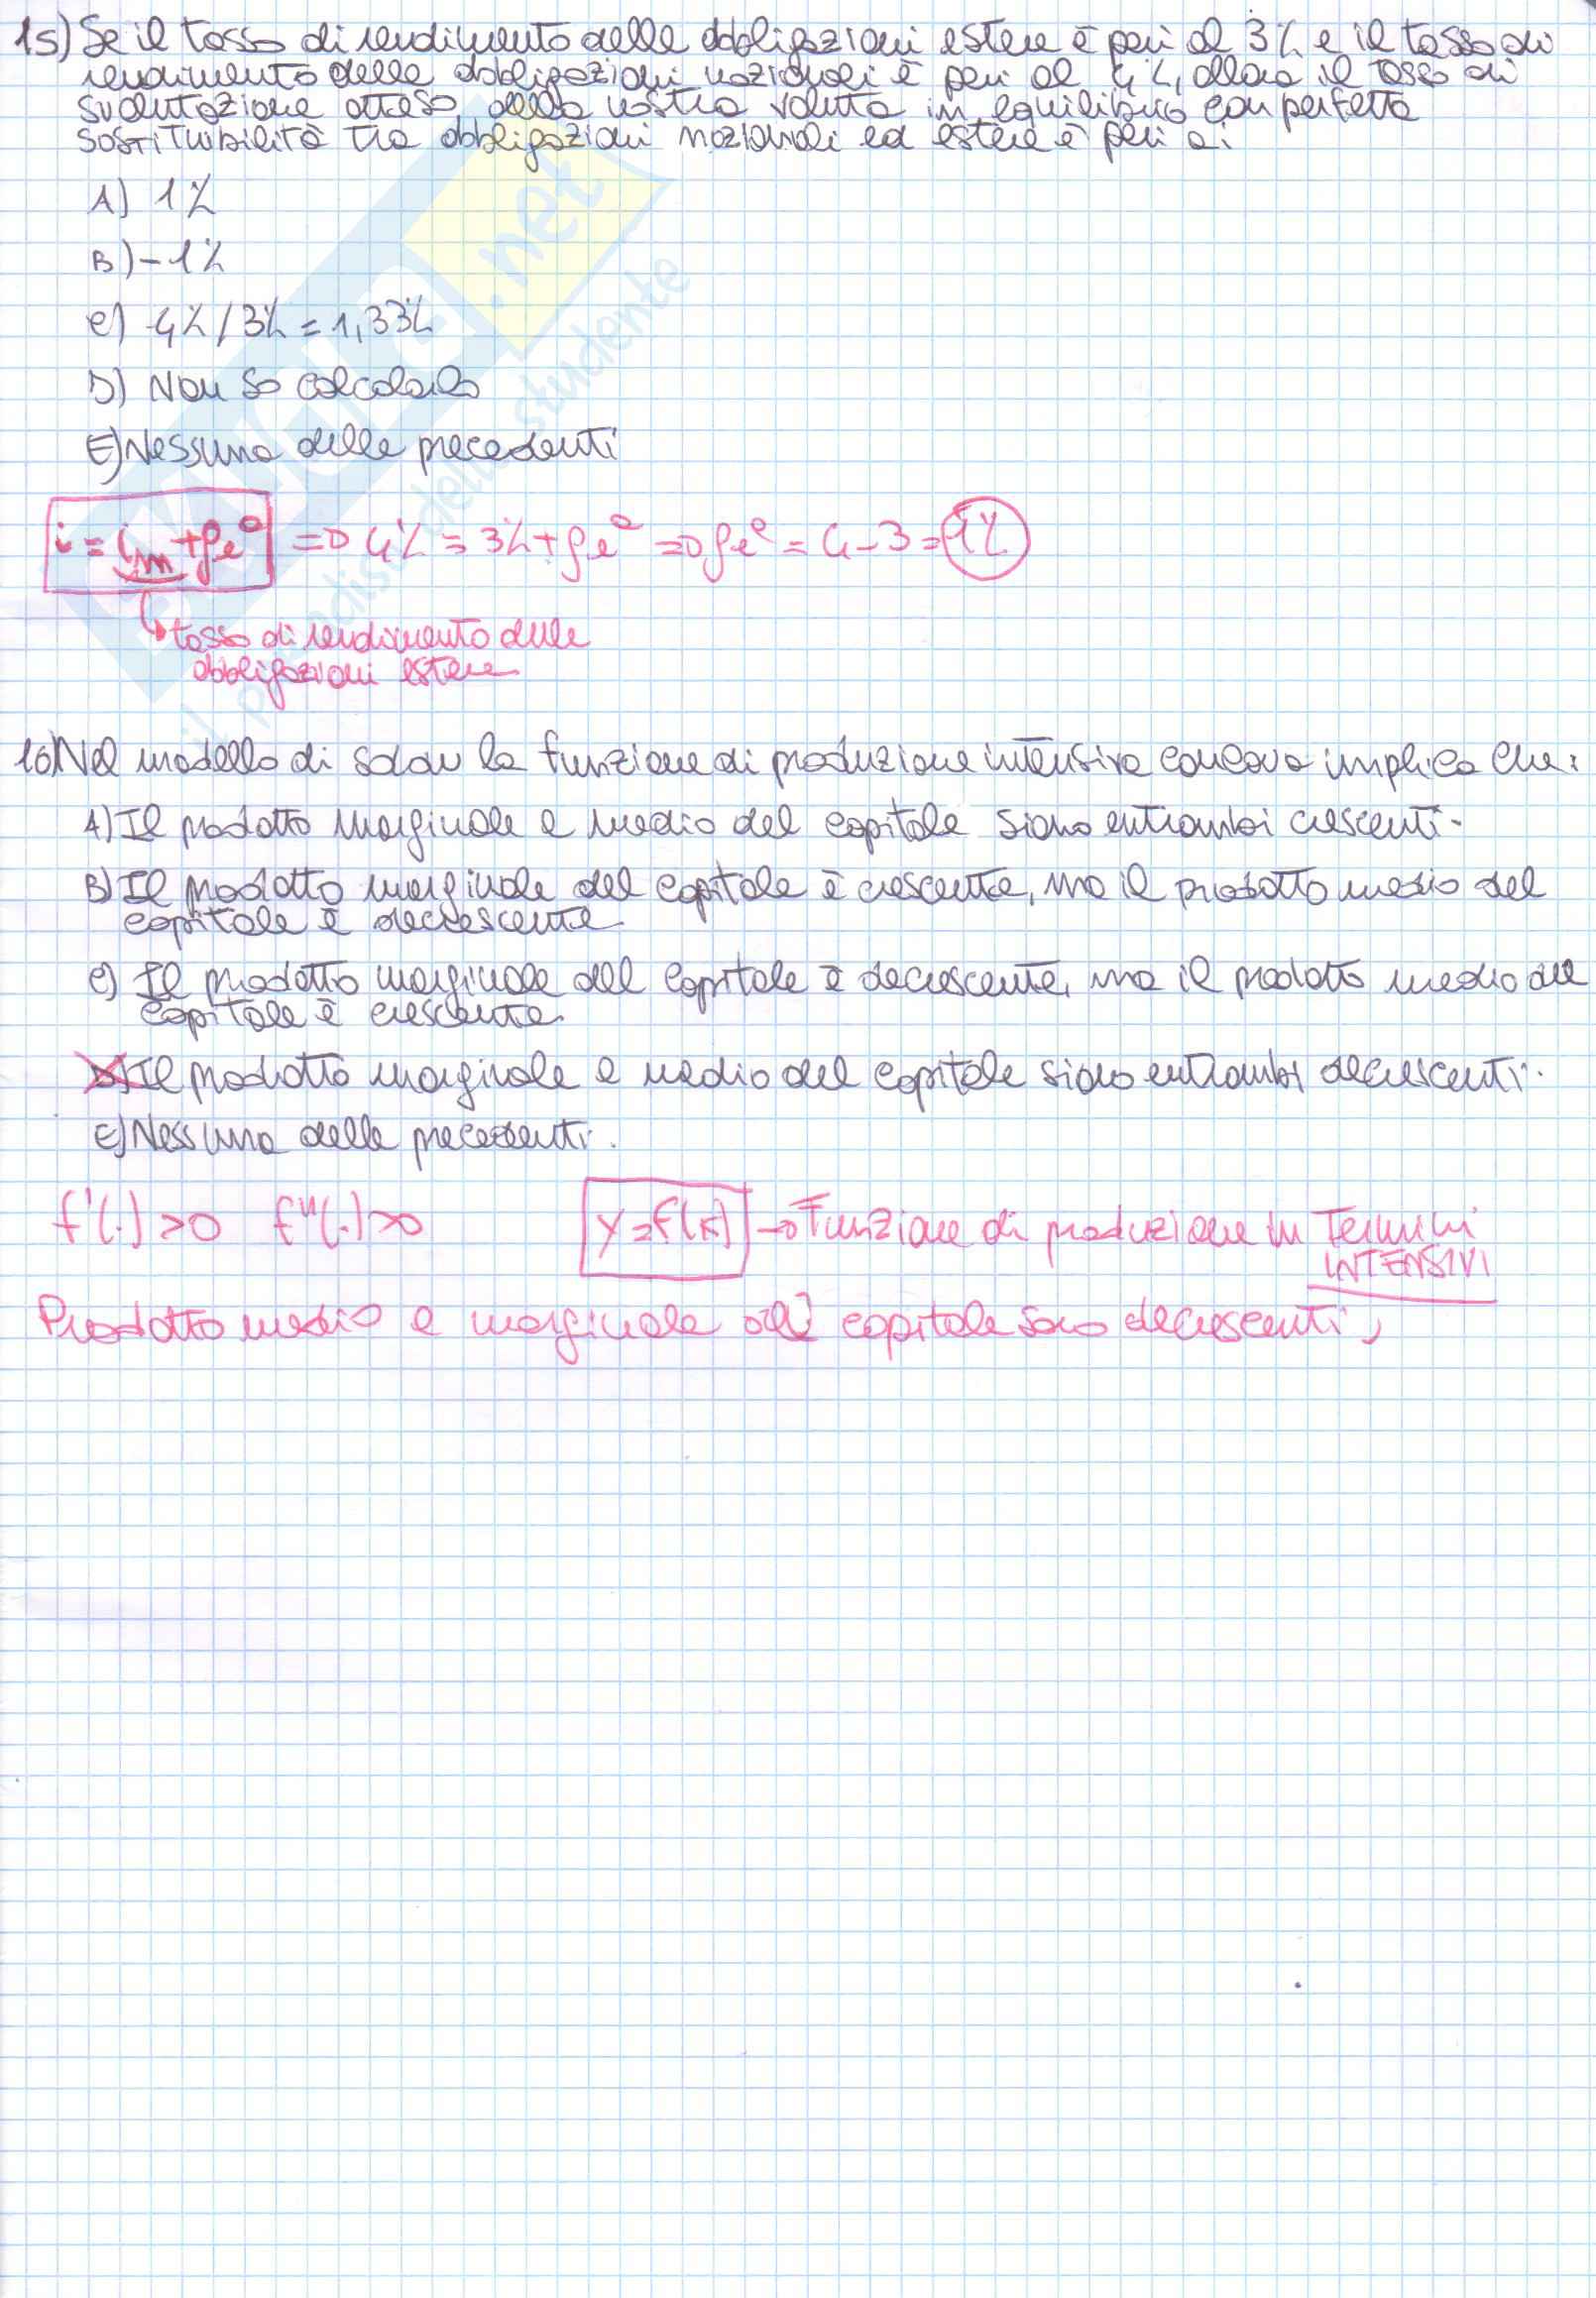 15) Se il tasso di rendimento delle obbligazioni estere è pari al 3% e il tasso di
rendimento delle obbligazioni nazionali è pari al 4%, allora il tasso di
svalutazione atteso della nostra valuta in equilibrio con perfetta
sostituibilità tra obbligazioni nazionali ed estere è pari a:
A) 1%
B) -1%
C) 4%/3% = 1,33%
D) Non so calcolarlo
E) Nessuna delle precedenti
=> 4% = 3% + => = 4-3 = 1%
tasso di rendimento delle
obbligazioni estere
16) Nel modello di Solow la funzione di produzione intensiva concava implica che:
A) Il prodotto marginale e medio del capitale siano entrambi crescenti.
B) Il prodotto marginale del capitale è crescente, ma il prodotto medio del
capitale è decrescente
C) Il prodotto marginale del capitale è decrescente, ma il prodotto medio del
capitale è crescente
D) Il prodotto marginale e medio del capitale siano entrambi decrescenti.
E) Nessuna delle precedenti.
f'(.) >0 f"(.) >0 y=f(k) → Funzione di produzione in Termini
INTENSIVI
Prodotto medio e marginale del capitale sono decrescenti
SKUOLA.net
il paradiso dello studente